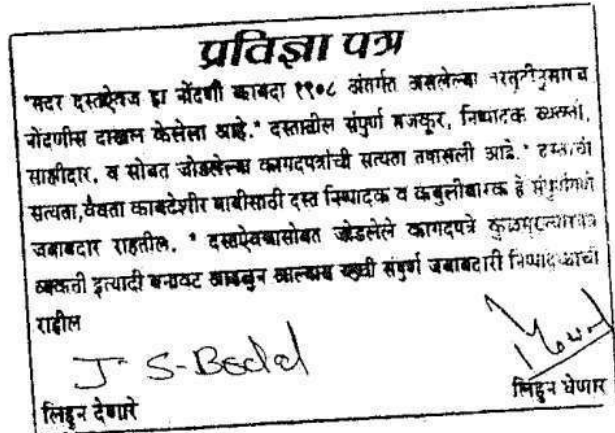 प्रतिज्ञा पत्र
"सदर दस्तऐवज हा नोंदणी कायदा १९०८ अंतर्गत असलेल्या तरतुदीनुसारच
नोंदणीस दाखल केलेला आहे." दस्तातील संपुर्ण मजकूर, निष्पादक व्यक्ती,
साक्षीदार, व सोबत जोडलेल्या कागदपत्रांची सत्यता तपासली आहे. " दस्ताची
सत्यता, वैधता कायदेशीर बाबीसाठी दस्त निष्पादक व कबुलीधारक हे संपुर्णपणे
जबाबदार राहतील. " दस्तऐवजासोबत जोडलेले कागदपत्रे कुळमुखत्यारपत्र
व्यक्ती इत्यादी बनावट आढळुन आल्यास याची संपुर्ण जबाबदारी निष्पादकाची
राहील
J S-Bodal
लिहुन देणारे
लिहुन घेणार